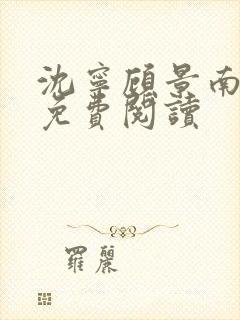 沈寧顧景南
免費閱讀
羅麗